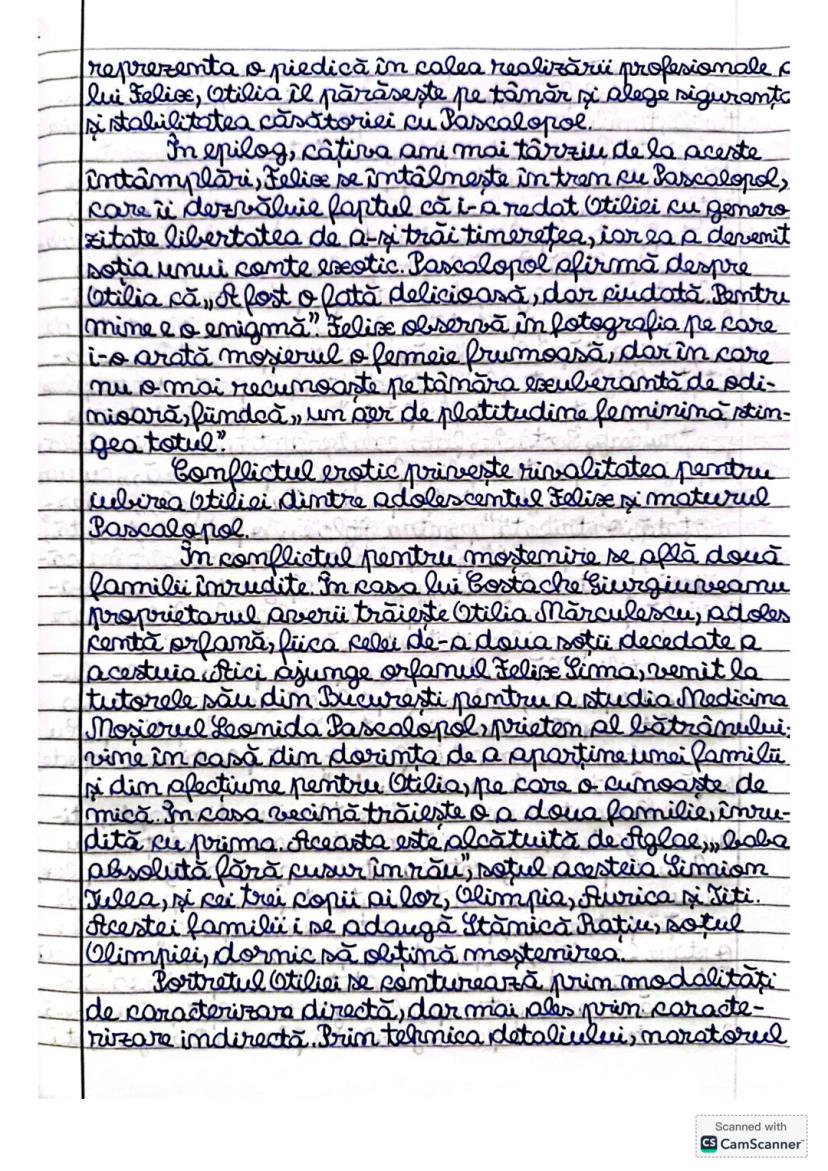 reprezenta o piedică în calea realizării profesionale a
lui Felix, Otilia îl părăsește pe tânăr și alege siguranța
și stabilitatea căsătoriei cu Pascalopol.
În epilog, câțiva ani mai târziu de la aceste
întâmplări, Felix se întâlnește în tren cu Pascalopol,
care îi dezvăluie faptul că i-a redat Otiliei cu genero
zitate libertatea de a-și trăi tinerețea, iar ea a devenit
soția unui conte exotic. Pascalopol afirmă despre
Otilia că „A fost o fată delicioasă, dar ciudată. Pentru
mine e o enigmă". Felix observă în fotografia pe care
i-o arată moșierul o femeie frumoasă, dar în care
nu o mai recunoaște pe tânăra exuberantă de odi-
nioară, fiindcă „un aer de platitudine feminină stin-
gea totul".
Conflictul erotic privește rivalitatea pentru
iubirea Otiliei dintre adolescentul Felix și maturul
Pascalopol.
În conflictul pentru moștenire se află două
familii înrudite. În casa lui Costache Giurgiuveanu
proprietarul averii trăiește Otilia Mărculescu, adoles
centă orfană, fiica celei de-a doua soții decedate a
acestuia. Aici ajunge orfanul Felix Sima, venit la
tutorele său din București pentru a studia Medicina
Moșierul Leonida Pascalopol, prieten al bătrânului,
vine în casă din dorința de a aparține unei familii
și din afecțiune pentru Otilia, pe care o cunoaște de
mică. În casa vecină trăiește o a doua familie, înru-
dită cu prima. Aceasta este alcătuită de Aglae, „baba
absolută fără cusur în rău", soțul acesteia Simion
Tulea, și cei trei copii ai lor, Olimpia, Aurica și Titi.
Acestei familii i se adaugă Stănică Rațiu, soțul
Olimpiei, dornic să obțină moștenirea.
Portretul Otiliei se conturează prin modalități
de caracterizare directă, dar mai ales prin caracte-
rizare indirectă. Prin tehnica detaliului, naratorul
Scanned with
CS CamScanner